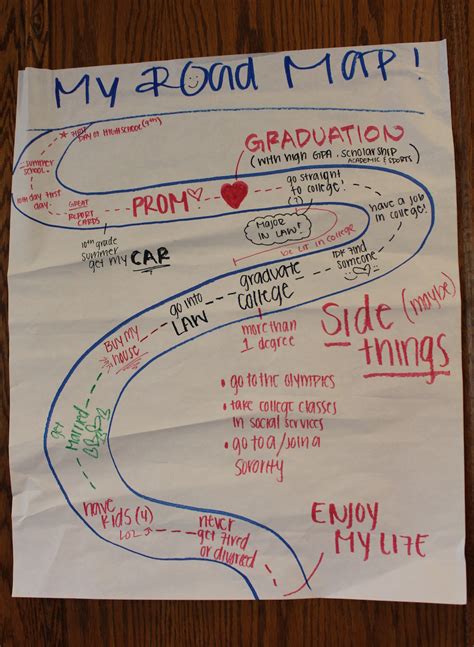 My Road Map!
DAY OF HIGH SCHOOL (9th)
summer
school
10th day first
day
GREAT
REPORT
CARDS
PROM
GRADUATION
(with high GPA, scholarship
ACADEMIC & SPORTS)
go straight
to college!
have a job
in college!
10th grade
summer
get my CAR
Major
IN LAW
LIT IN college
IDK find
someone
graduate
college
go into
LAW
more than
1 degree
BUY my
house
Side (maybe)
things
• go to the OLYMPICS
• take college classes
in social services
• go to a / join a
sorority
get
Married
have
kids (4)
LOL
never
get fired
or divorced
ENJOY
MY LIFE